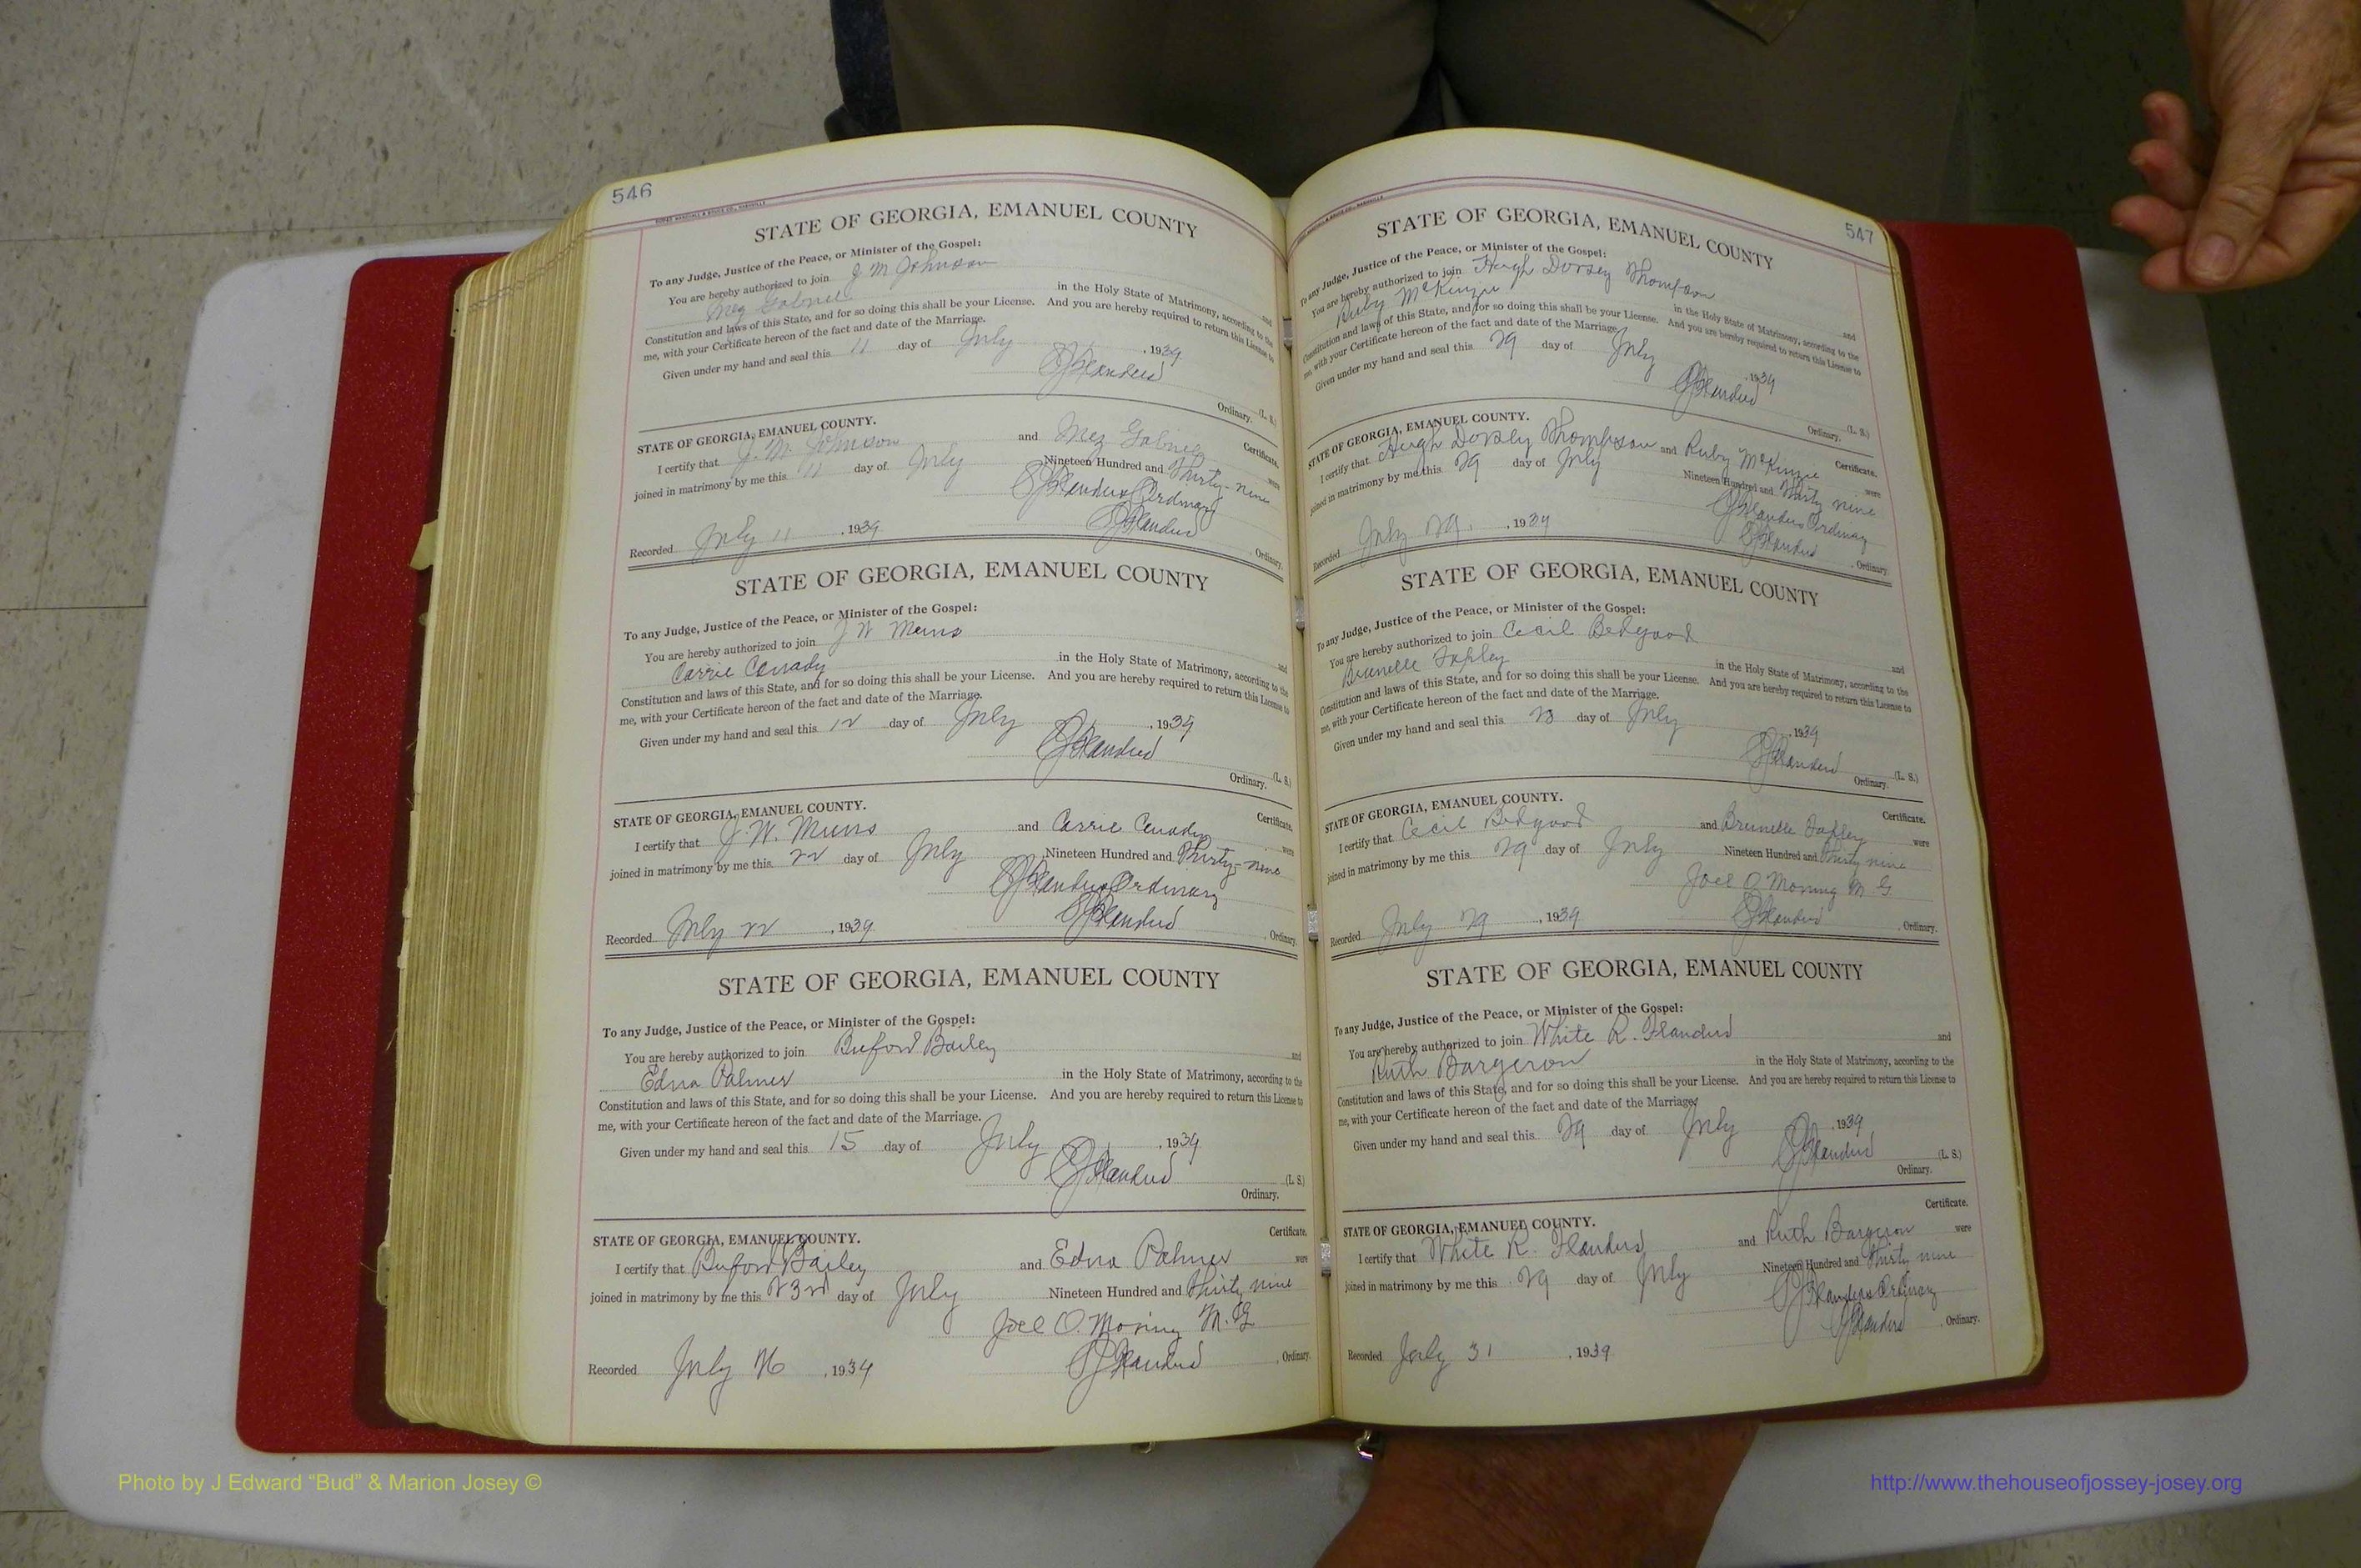 546
STATE OF GEORGIA, EMANUEL COUNTY
To any Judge, Justice of the Peace, or Minister of the Gospel:
You are hereby authorized to join J M Johnson and
Gabriel in the Holy State of Matrimony, according to the
Constitution and laws of this State, and for so doing this shall be your License. And you are hereby required to return this License to
me, with your Certificate hereon of the fact and date of the Marriage.
Given under my hand and seal this 11 day of July , 1939
Flanders (L. S.)
Ordinary.
STATE OF GEORGIA, EMANUEL COUNTY. Certificate.
I certify that J. M. Johnson and Gabriel were
joined in matrimony by me this 11 day of July Nineteen Hundred and Thirty-nine
Flanders Ordinary
Flanders
Recorded July 11 , 1939 Ordinary.
STATE OF GEORGIA, EMANUEL COUNTY
To any Judge, Justice of the Peace, or Minister of the Gospel:
You are hereby authorized to join J W and
Carrie Canady in the Holy State of Matrimony, according to the
Constitution and laws of this State, and for so doing this shall be your License. And you are hereby required to return this License to
me, with your Certificate hereon of the fact and date of the Marriage.
Given under my hand and seal this 12 day of July , 1939
Flanders (L. S.)
Ordinary.
STATE OF GEORGIA, EMANUEL COUNTY. Certificate.
I certify that J. W. and Carrie Canady were
joined in matrimony by me this 22 day of July Nineteen Hundred and Thirty-nine
Flanders Ordinary
Flanders
Recorded July 22 , 1939 Ordinary.
STATE OF GEORGIA, EMANUEL COUNTY
To any Judge, Justice of the Peace, or Minister of the Gospel:
You are hereby authorized to join Buford Bailey and
Edna Palmer in the Holy State of Matrimony, according to the
Constitution and laws of this State, and for so doing this shall be your License. And you are hereby required to return this License to
me, with your Certificate hereon of the fact and date of the Marriage.
Given under my hand and seal this 15 day of July , 1939
Flanders (L. S.)
Ordinary.
Certificate.
STATE OF GEORGIA, EMANUEL COUNTY.
I certify that Buford Bailey and Edna Palmer were
joined in matrimony by me this 23rd day of July Nineteen Hundred and Thirty nine
Joel O. Moring M. G.
Flanders Ordinary.
Recorded July 26 , 1939
547
STATE OF GEORGIA, EMANUEL COUNTY
To any Judge, Justice of the Peace, or Minister of the Gospel:
You are hereby authorized to join Hugh Dorsey Thompson and
Ruby McKinzie in the Holy State of Matrimony, according to the
Constitution and laws of this State, and for so doing this shall be your License. And you are hereby required to return this License to
me, with your Certificate hereon of the fact and date of the Marriage.
Given under my hand and seal this 29 day of July , 1939
Flanders (L. S.)
Ordinary.
STATE OF GEORGIA, EMANUEL COUNTY. Certificate.
I certify that Hugh Dorsey Thompson and Ruby McKinzie were
joined in matrimony by me this 29 day of July Nineteen Hundred and Thirty nine
Flanders Ordinary
Flanders
Recorded July 29. , 1939 Ordinary.
STATE OF GEORGIA, EMANUEL COUNTY
To any Judge, Justice of the Peace, or Minister of the Gospel:
You are hereby authorized to join Cecil Bedgood and
Brunelle Tapley in the Holy State of Matrimony, according to the
Constitution and laws of this State, and for so doing this shall be your License. And you are hereby required to return this License to
me, with your Certificate hereon of the fact and date of the Marriage.
Given under my hand and seal this day of July , 1939
Flanders (L. S.)
Ordinary.
STATE OF GEORGIA, EMANUEL COUNTY. Certificate.
I certify that Cecil Bedgood and Brunelle Tapley were
joined in matrimony by me this 29 day of July Nineteen Hundred and Thirty nine
Joel O Moring M G
Flanders
Recorded July 29 , 1939 Ordinary.
STATE OF GEORGIA, EMANUEL COUNTY
To any Judge, Justice of the Peace, or Minister of the Gospel:
You are hereby authorized to join White R. Flanders and
Ruth Bargeron in the Holy State of Matrimony, according to the
Constitution and laws of this State, and for so doing this shall be your License. And you are hereby required to return this License to
me, with your Certificate hereon of the fact and date of the Marriage.
Given under my hand and seal this 29 day of July , 1939
Flanders (L. S.)
Ordinary.
Certificate.
STATE OF GEORGIA, EMANUEL COUNTY.
I certify that White R. Flanders and Ruth Bargeron were
joined in matrimony by me this 29 day of July Nineteen Hundred and Thirty nine
Flanders Ordinary
Flanders Ordinary.
Recorded July 31 , 1939
Photo by J Edward “Bud” & Marion Josey ©
http://www.thehouseofjossey-josey.org